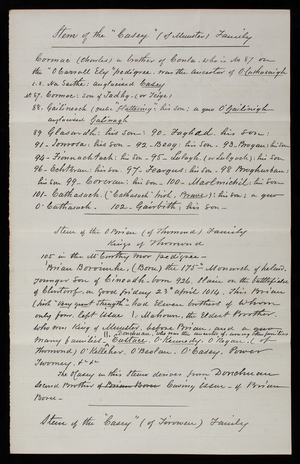 Stem of the "Casey" (of Munster) Family
Cormac (Charles) a brother of Conla, who is No 87 on
the "O'Carroll Ely" pedigree; was the ancestor of O'Cathasaigh
Na Saithe; anglicised Casey
87. Cormac: son of Tadhg (or Teige)
88. Gailineach ( "flattering" his son; a quo O'Gailinigh
anglicised Galinagh
89 Glasardh: his son: 90. Faghad: his son:
91. - Sonrosa: his son - 92. Beag: his son. 93. Brogan: his son
94. - Fionnachtach: his son - 95. - Lulagh (or Lulgach): his son
96. - Echtbran: his son. 97. - Feargus: his son: 98 Broghurban:
his son 99. - Corcran: his son - 100. - Maolmichil: his son
101. - Cathasach ("Cathasach" Irish, Brave): his son; a quo
O'Cathasach. 102. - Gairbith: his son -
Stem of the O'Brian (of Thomond) Family
Kings of Thomond
105 in the McCarthy Mor pedigree -
Brian Boroimhe, (Boru) the 175th Monarch of Ireland,
younger son of Cineadh, born 926, slain on the battlefield
of Clontarf, on Good Friday 23rd April 1014. This Brian
(Irish "Very great Strength") had Eleven brothers of whom
only four left issue 1. Mahoun, the Eldest Brother,
who was King of Munster, before Brian, and a quo
11. Donchuan, who was the ancestor of among other families
many families Eustace. O'Kennedy. O'Regan. (of
Thomond) O'Kelleher. O'Beolan. O'Casey. Power
Twomey. &c &c
The Casey in this Stem derives from Donchuan
Second Brother of Brian Boru leaving issue - of Brian
Boru -
Stem of the "Casey" (of Tirowen) Family